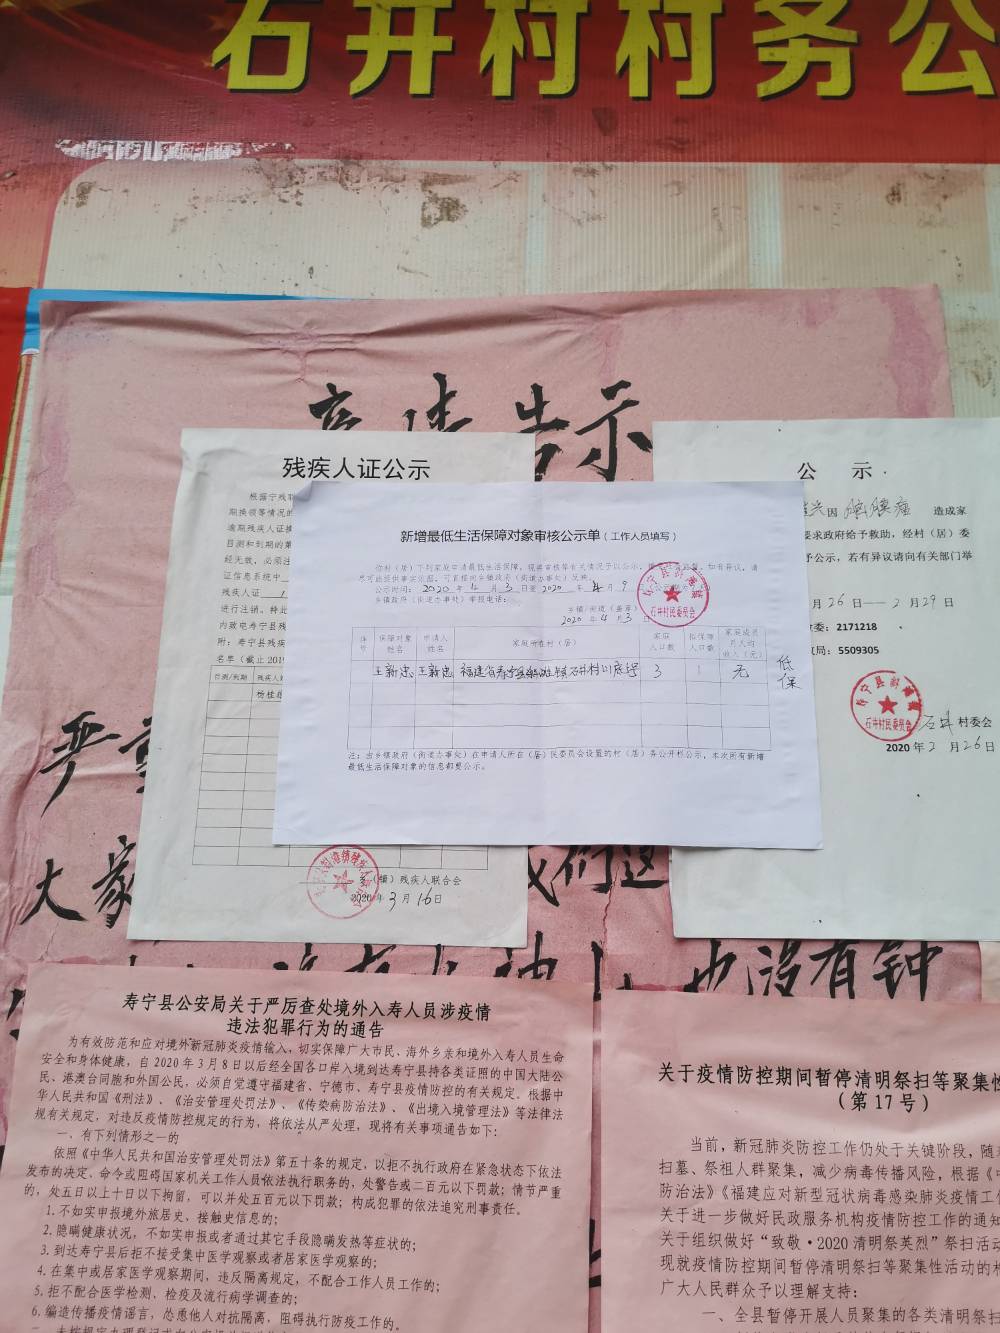 石井村村务公
告示
残疾人证公示
根据宁残联
期换领等情况的
逾期残疾人证换
目测和到期的第
经无效，必须注
证信息系统中
残疾人证
进行注销。特此
内致电寿宁县残
附：寿宁县残疾
名单（截止201
目测/到期 残疾人
杨桂
（镇）残疾人联合会
2020年3月16日
新增最低生活保障对象审核公示单（工作人员填写）
你村（居）下列家庭申请最低生活保障，现将审核等有关情况予以公示，
尽可能提供事实依据，可直接向乡镇政府（街道办事处）反映。
公示时间：2020年4月3日至2020年4月9
乡镇政府（街道办事处）举报电话：
乡镇/街道（盖章）
2020年4月3日
寿宁县斜滩镇
石井村民委员会
序号 保障对象姓名 申请人姓名 家庭所在村（居） 家庭人口数 拟保障人口数 家庭成员月人均收入（元）
王新忠 王新忠 福建省寿宁县斜滩镇石井村 3 1 元 低保
注：当乡镇政府（街道办事处）在申请人所在（居）民委员会设置的村（居）务公开栏公示，本次所有新增
最低生活保障对象的信息都要公示。
公 示
兴因 造成家
要求政府给予救助，经村（居）委
予公示，若有异议请向有关部门举
月26日——2月29日
委：2171218
政局：5509305
寿宁县斜滩镇
石井村民委员会
石井村委会
2020年2月26日
严重
大家
们这
也没有钟
寿宁县公安局关于严厉查处境外入寿人员涉疫情
违法犯罪行为的通告
为有效防范和应对境外新冠肺炎疫情输入，切实保障广大市民、海外乡亲和境外入寿人员生命
安全和身体健康，自2020年3月8日以后经全国各口岸入境到达寿宁县持各类证照的中国大陆公
民、港澳台同胞和外国公民，必须自觉遵守福建省、宁德市、寿宁县疫情防控的有关规定。根据中
华人民共和国《刑法》、《治安管理处罚法》、《传染病防治法》、《出境入境管理法》等法律法
规有关规定，对违反疫情防控规定的行为，将依法从严处理，现将有关事项通告如下：
一、有下列情形之一的
依照《中华人民共和国治安管理处罚法》第五十条的规定，以拒不执行政府在紧急状态下依法
发布的决定、命令或阻碍国家机关工作人员依法执行职务的，处警告或二百元以下罚款；情节严重
的，处五日以上十日以下拘留，可以并处五百元以下罚款；构成犯罪的依法追究刑事责任。
1.不如实申报境外旅居史、接触史信息的；
2.隐瞒健康状况，不如实申报或者通过其它手段隐瞒发热等症状的；
3.到达寿宁县后拒不接受集中医学观察或者居家医学观察的；
4.在集中或居家医学观察期间，违反隔离规定，不配合工作人员工作的；
5.拒不配合医学检测、检疫及流行病学调查的；
6.编造传播疫情谣言，怂恿他人对抗隔离，阻碍执行防疫工作的。
关于疫情防控期间暂停清明祭扫等聚集性
（第17号）
当前，新冠肺炎防控工作仍处于关键阶段，随着
扫墓、祭祖人群聚集，减少病毒传播风险，根据《中
防治法》《福建应对新型冠状病毒感染肺炎疫情工作
关于进一步做好民政服务机构疫情防控工作的通知
关于组织做好“致敬·2020清明祭英烈”祭扫活动
现就疫情防控期间暂停清明祭扫等聚集性活动的相
广大人民群众予以理解支持：
一、全县暂停开展人员聚集的各类清明祭扫